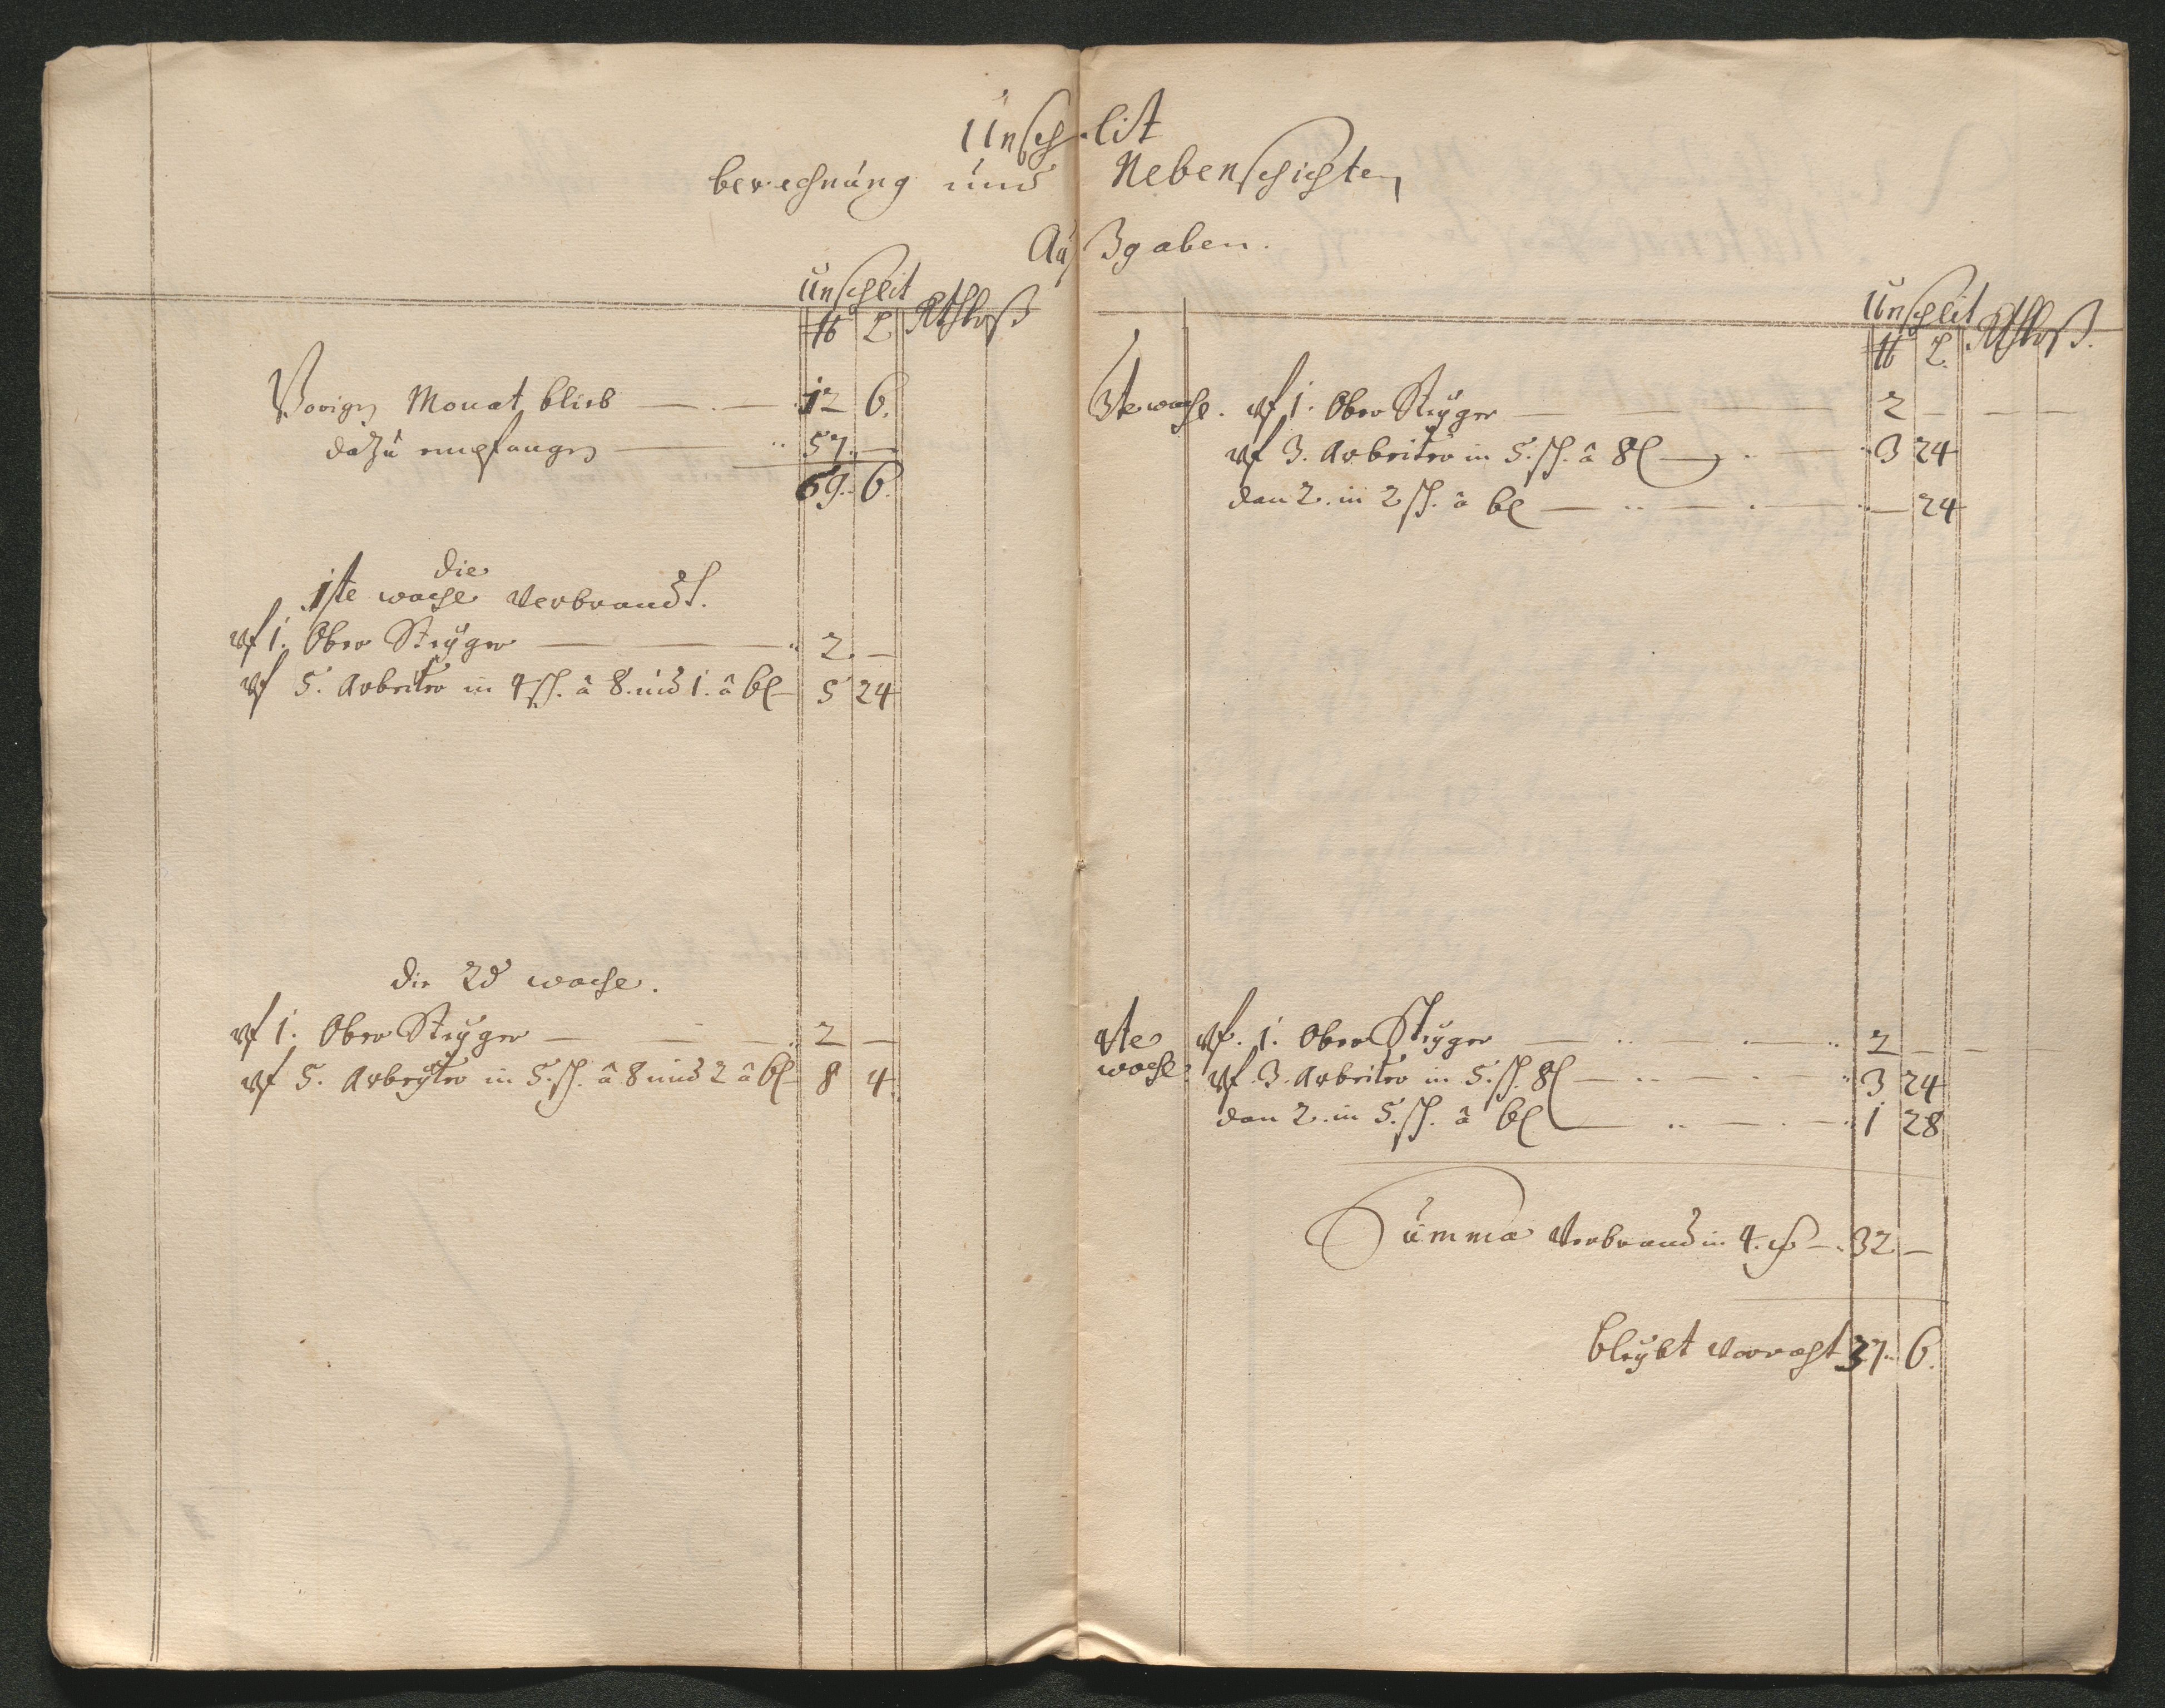 Unschlit
berechnung und Nebenschichten
Außgaben.
Unschlit
℔ L. Rthlr gl ₰
Vorign Monat blieb — 12 6.
dazu empfangn — 57. —
69. 6.
die
1ste woche verbrandt.
uf 1. Ober Steÿger — 2. —
uf 5. Arbeiter in 4 sch. â 8. und 1. â 6l — 5 24
die 2d woche.
uf 1. Ober Steÿger — 2 —
uf 5. Arbeÿter in 5. sch. â 8 und 2 â 6l — 8 4.
Unschlit
℔ L.
3te woche. uf 1. Ober Steÿger — 2 — — —
uf 3. Arbeiter in 5. sch. â 8l — 3 24
dan 2. in 2 sch. â 6l — — 24
4te uf. 1. Ober Steÿger — 2 — — —
woche. uf. 3. Arbeiter in 5. sch. 8l — 3 24
dan 2. in 5. sch. â 6l — 1 28
Summa Verbrand in 4. — 32 —
bleÿbt Vorraht 37. 6.